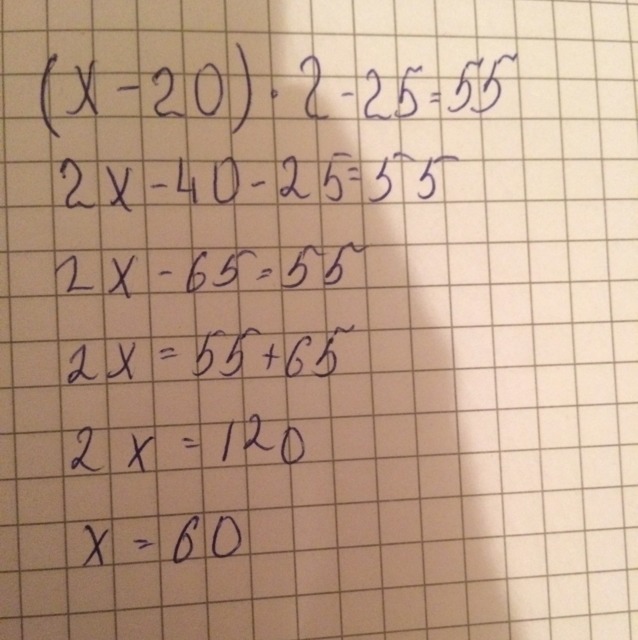 (x-20)·2-25=55
2x-40-25=55
2x-65=55
2x=55+65
2x=120
x=60